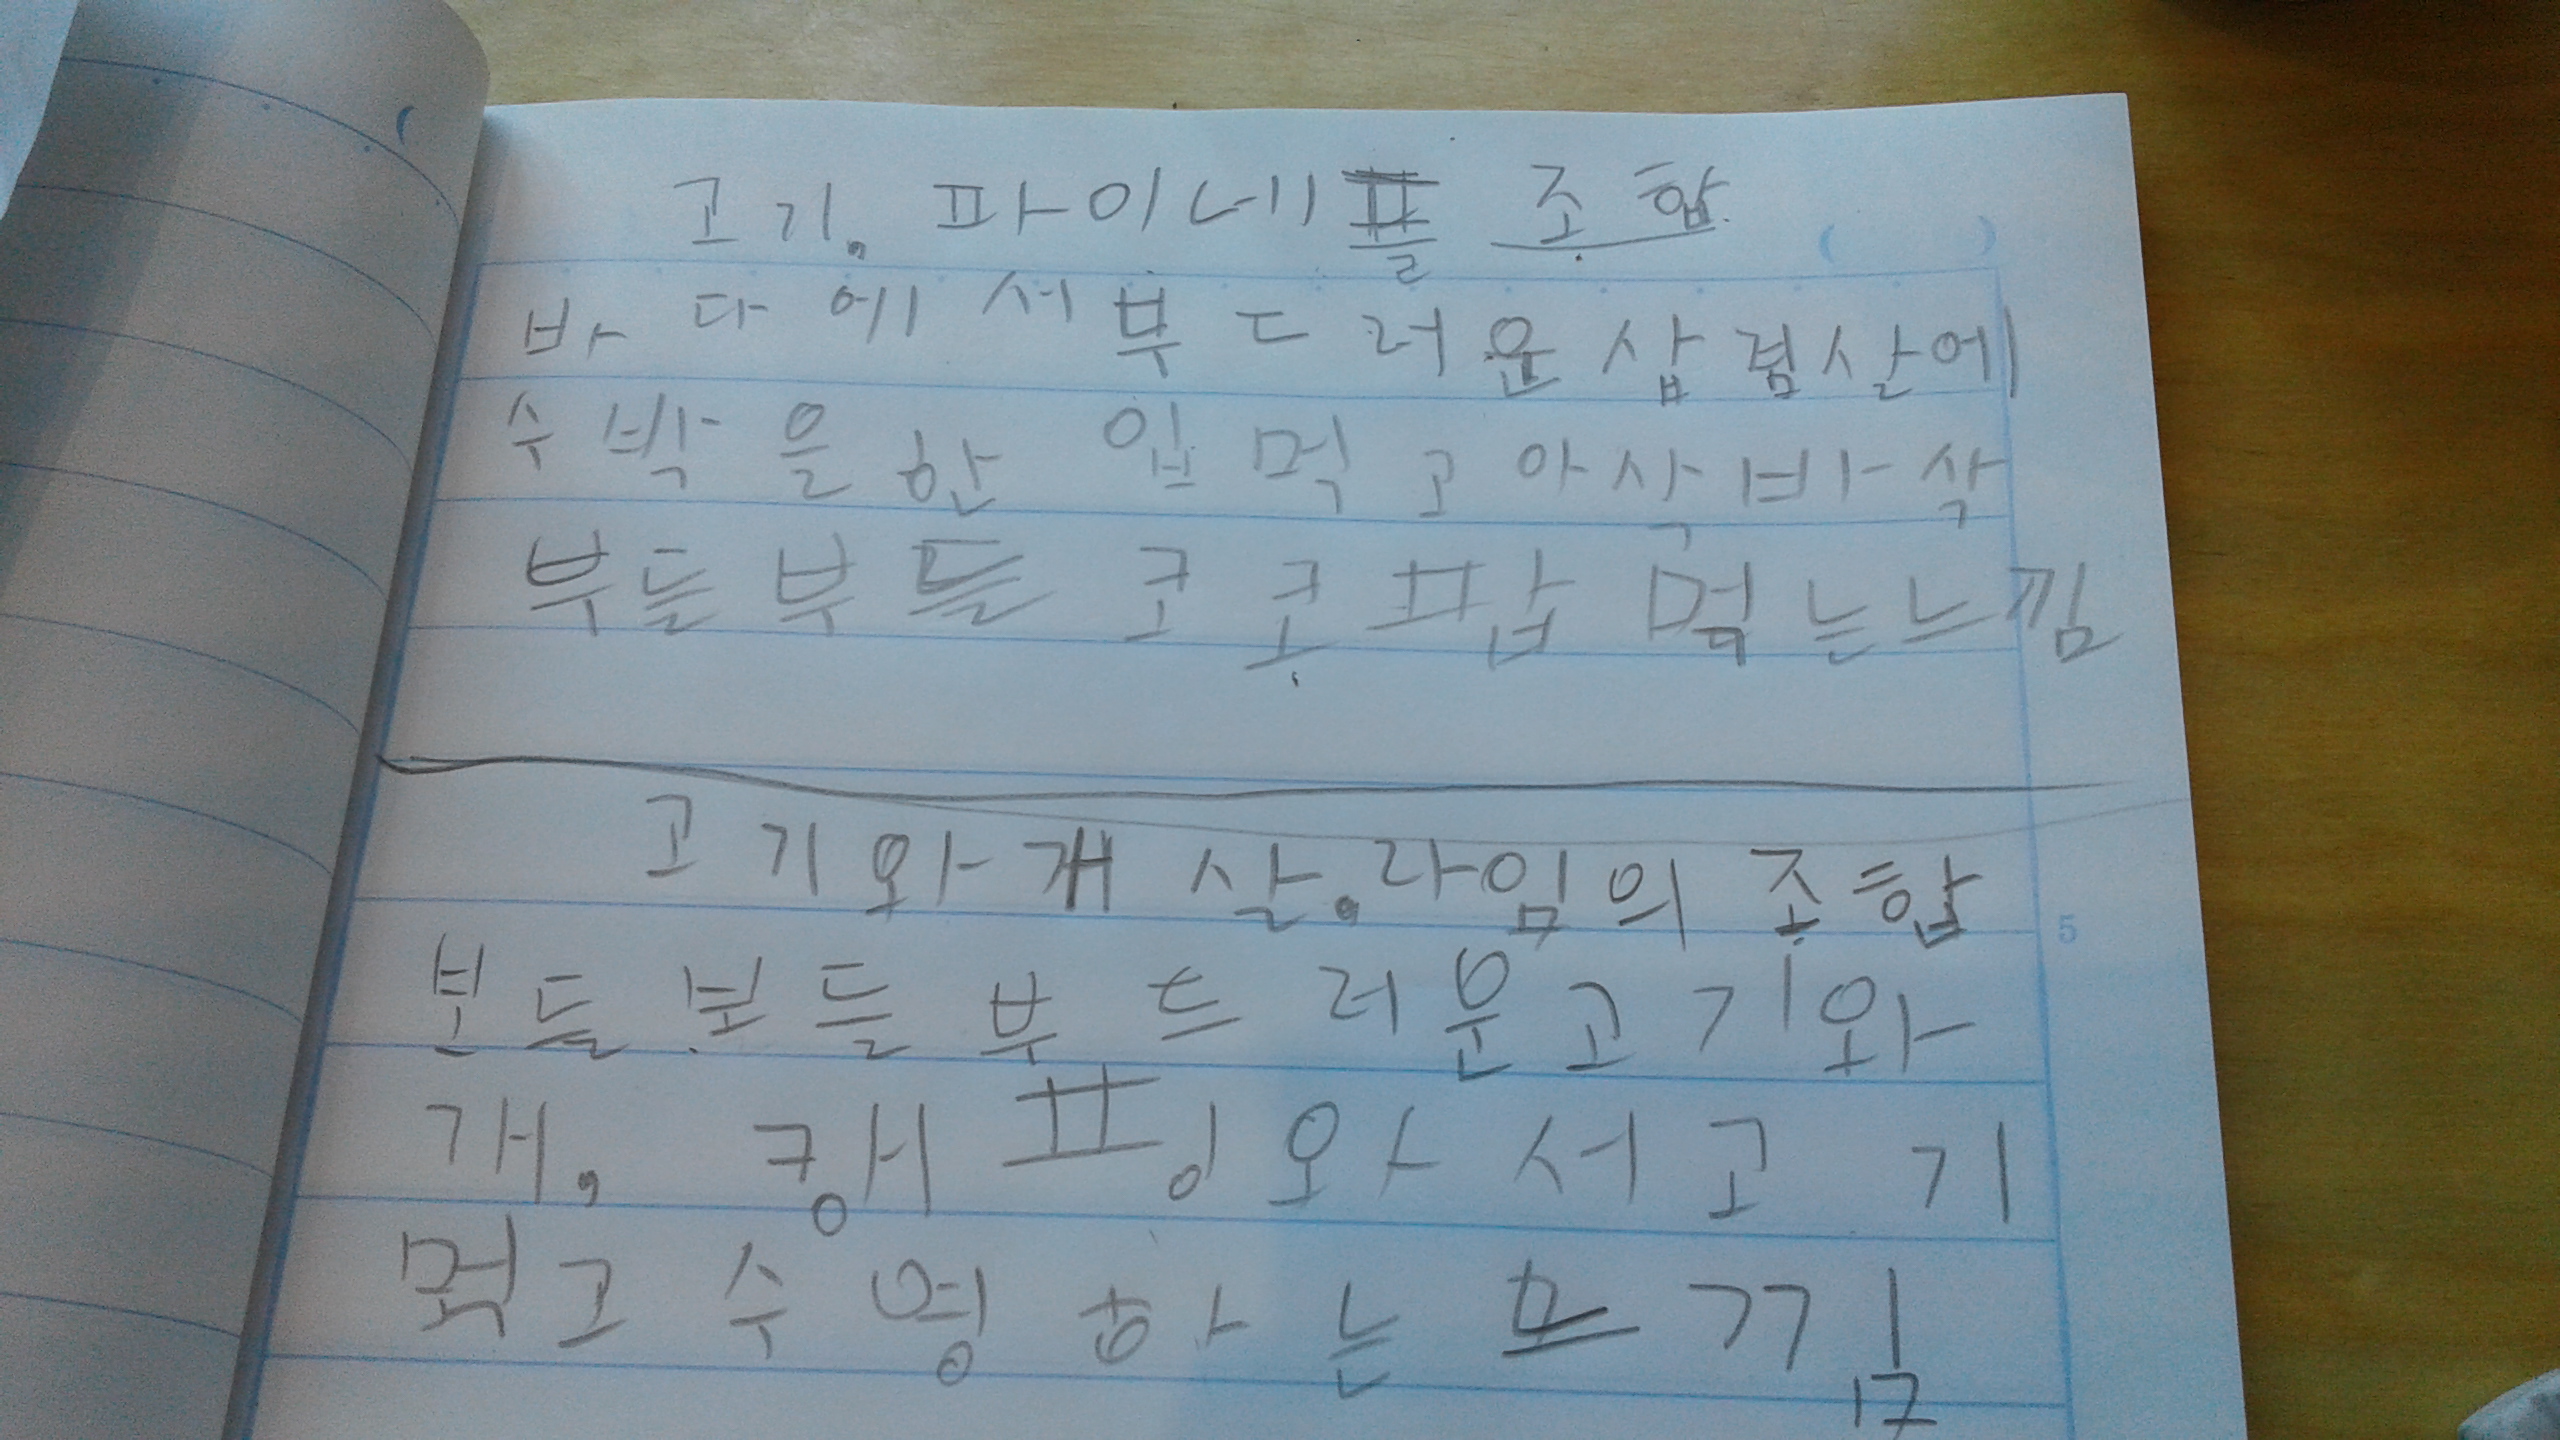 고기, 파이네플 조합
바다에서 부드러운 삽겸살에
수박을 한 입 먹고 아삭바삭
부들부들 코코팝 먹는 느낌
고기와 개살, 라임의 조합
보들보들 부드러운 고기와
개, 캥핑와서 고기
먹고 수영하는 느낌
5